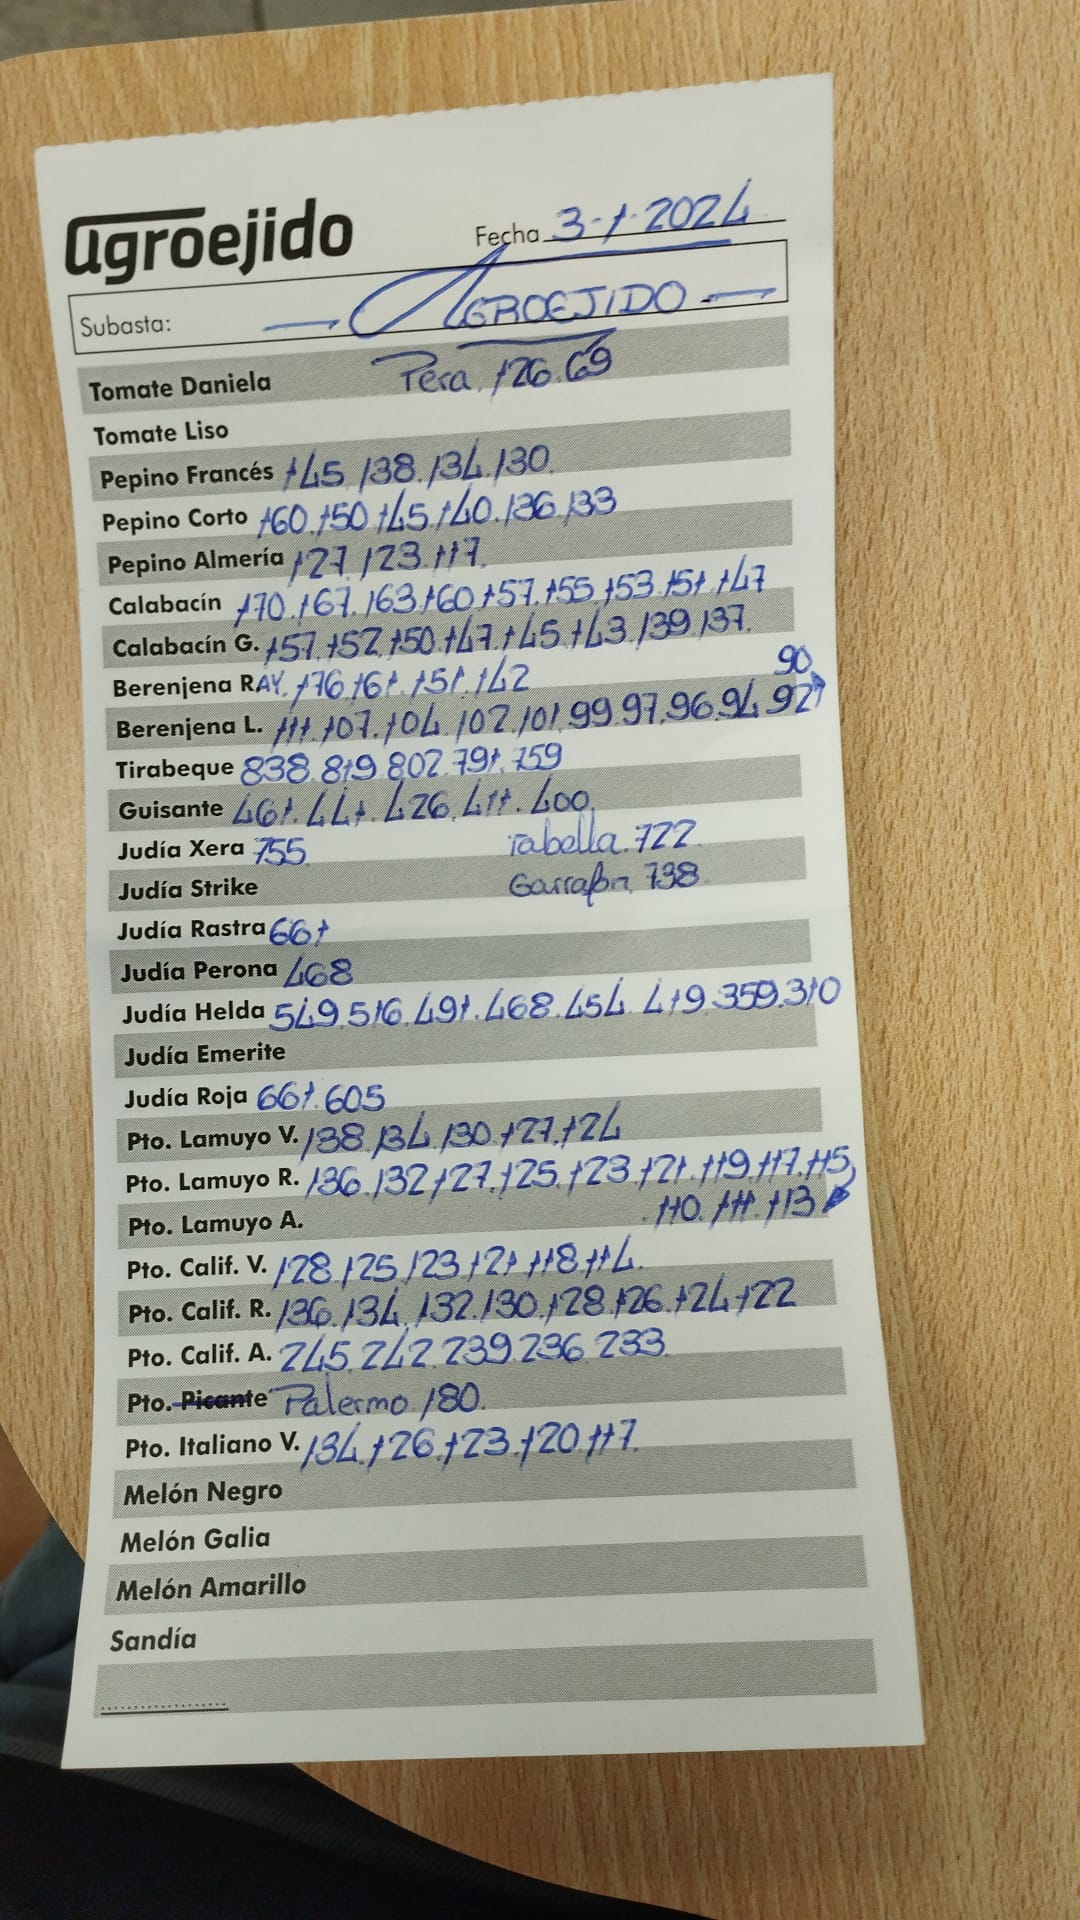 agroejido
Fecha 3-1-2024
Subasta: — AGROEJIDO —
Tomate Daniela Pera. 126.69
Tomate Liso
Pepino Francés 145 138.134.130
Pepino Corto 160.150 145.140.136.133
Pepino Almería 127 123.117.
Calabacín 170.167.163 160 157.155 153.151.147
Calabacín G. 157.152.150.147.145.143.139.137.
Berenjena RAY. 176.161.151.142
90
Berenjena L. 111.107.104.102.101.99.97.96.94.92
Tirabeque 838.819 802.791.759
Guisante 461.441.426.411.400
Judía Xera 755. Tabella.722.
Judía Strike Garrafón 738
Judía Rastra 661
Judía Perona 468
Judía Helda 549.516.491.468.454.419.359.310
Judía Emerite
Judía Roja 661.605
Pto. Lamuyo V. 138.134.130.127.124
Pto. Lamuyo R. 136.132 127.125.123 121.119.117.115
Pto. Lamuyo A. .110.111.113
Pto. Calif. V. 128.125.123 121 118.114.
Pto. Calif. R. 136.134.132.130.128.126.124.122
Pto. Calif. A. 245.242.239.236 233
Pto. Picante Palermo 180.
Pto. Italiano V. 134.126.123.120.117.
Melón Negro
Melón Galia
Melón Amarillo
Sandía